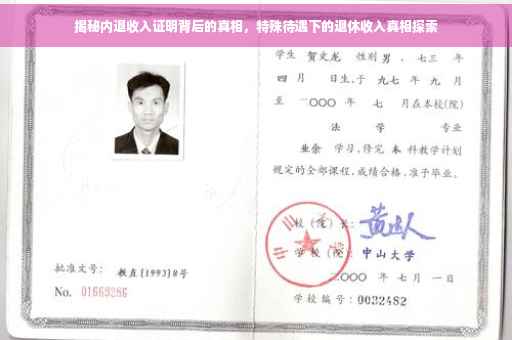 揭秘内退收入证明背后的真相，特殊待遇下的退休收入真相探索
学生 贺文龙 性别 男 、七三 年
四 月 日生,于 九七 年 九 月
至 二〇〇〇 年 七 月在本校(院)
法 学 专业
业余 学习,修完 本 科教学计划
规定的全部课程,成绩合格,准予毕业。
校(院)长:
学 校(院): 中山大学
二〇〇〇 年 七 月 一 日
批准文号: 教直[1993]8号
No. 01669286
学校编号: 0032482
中山大学